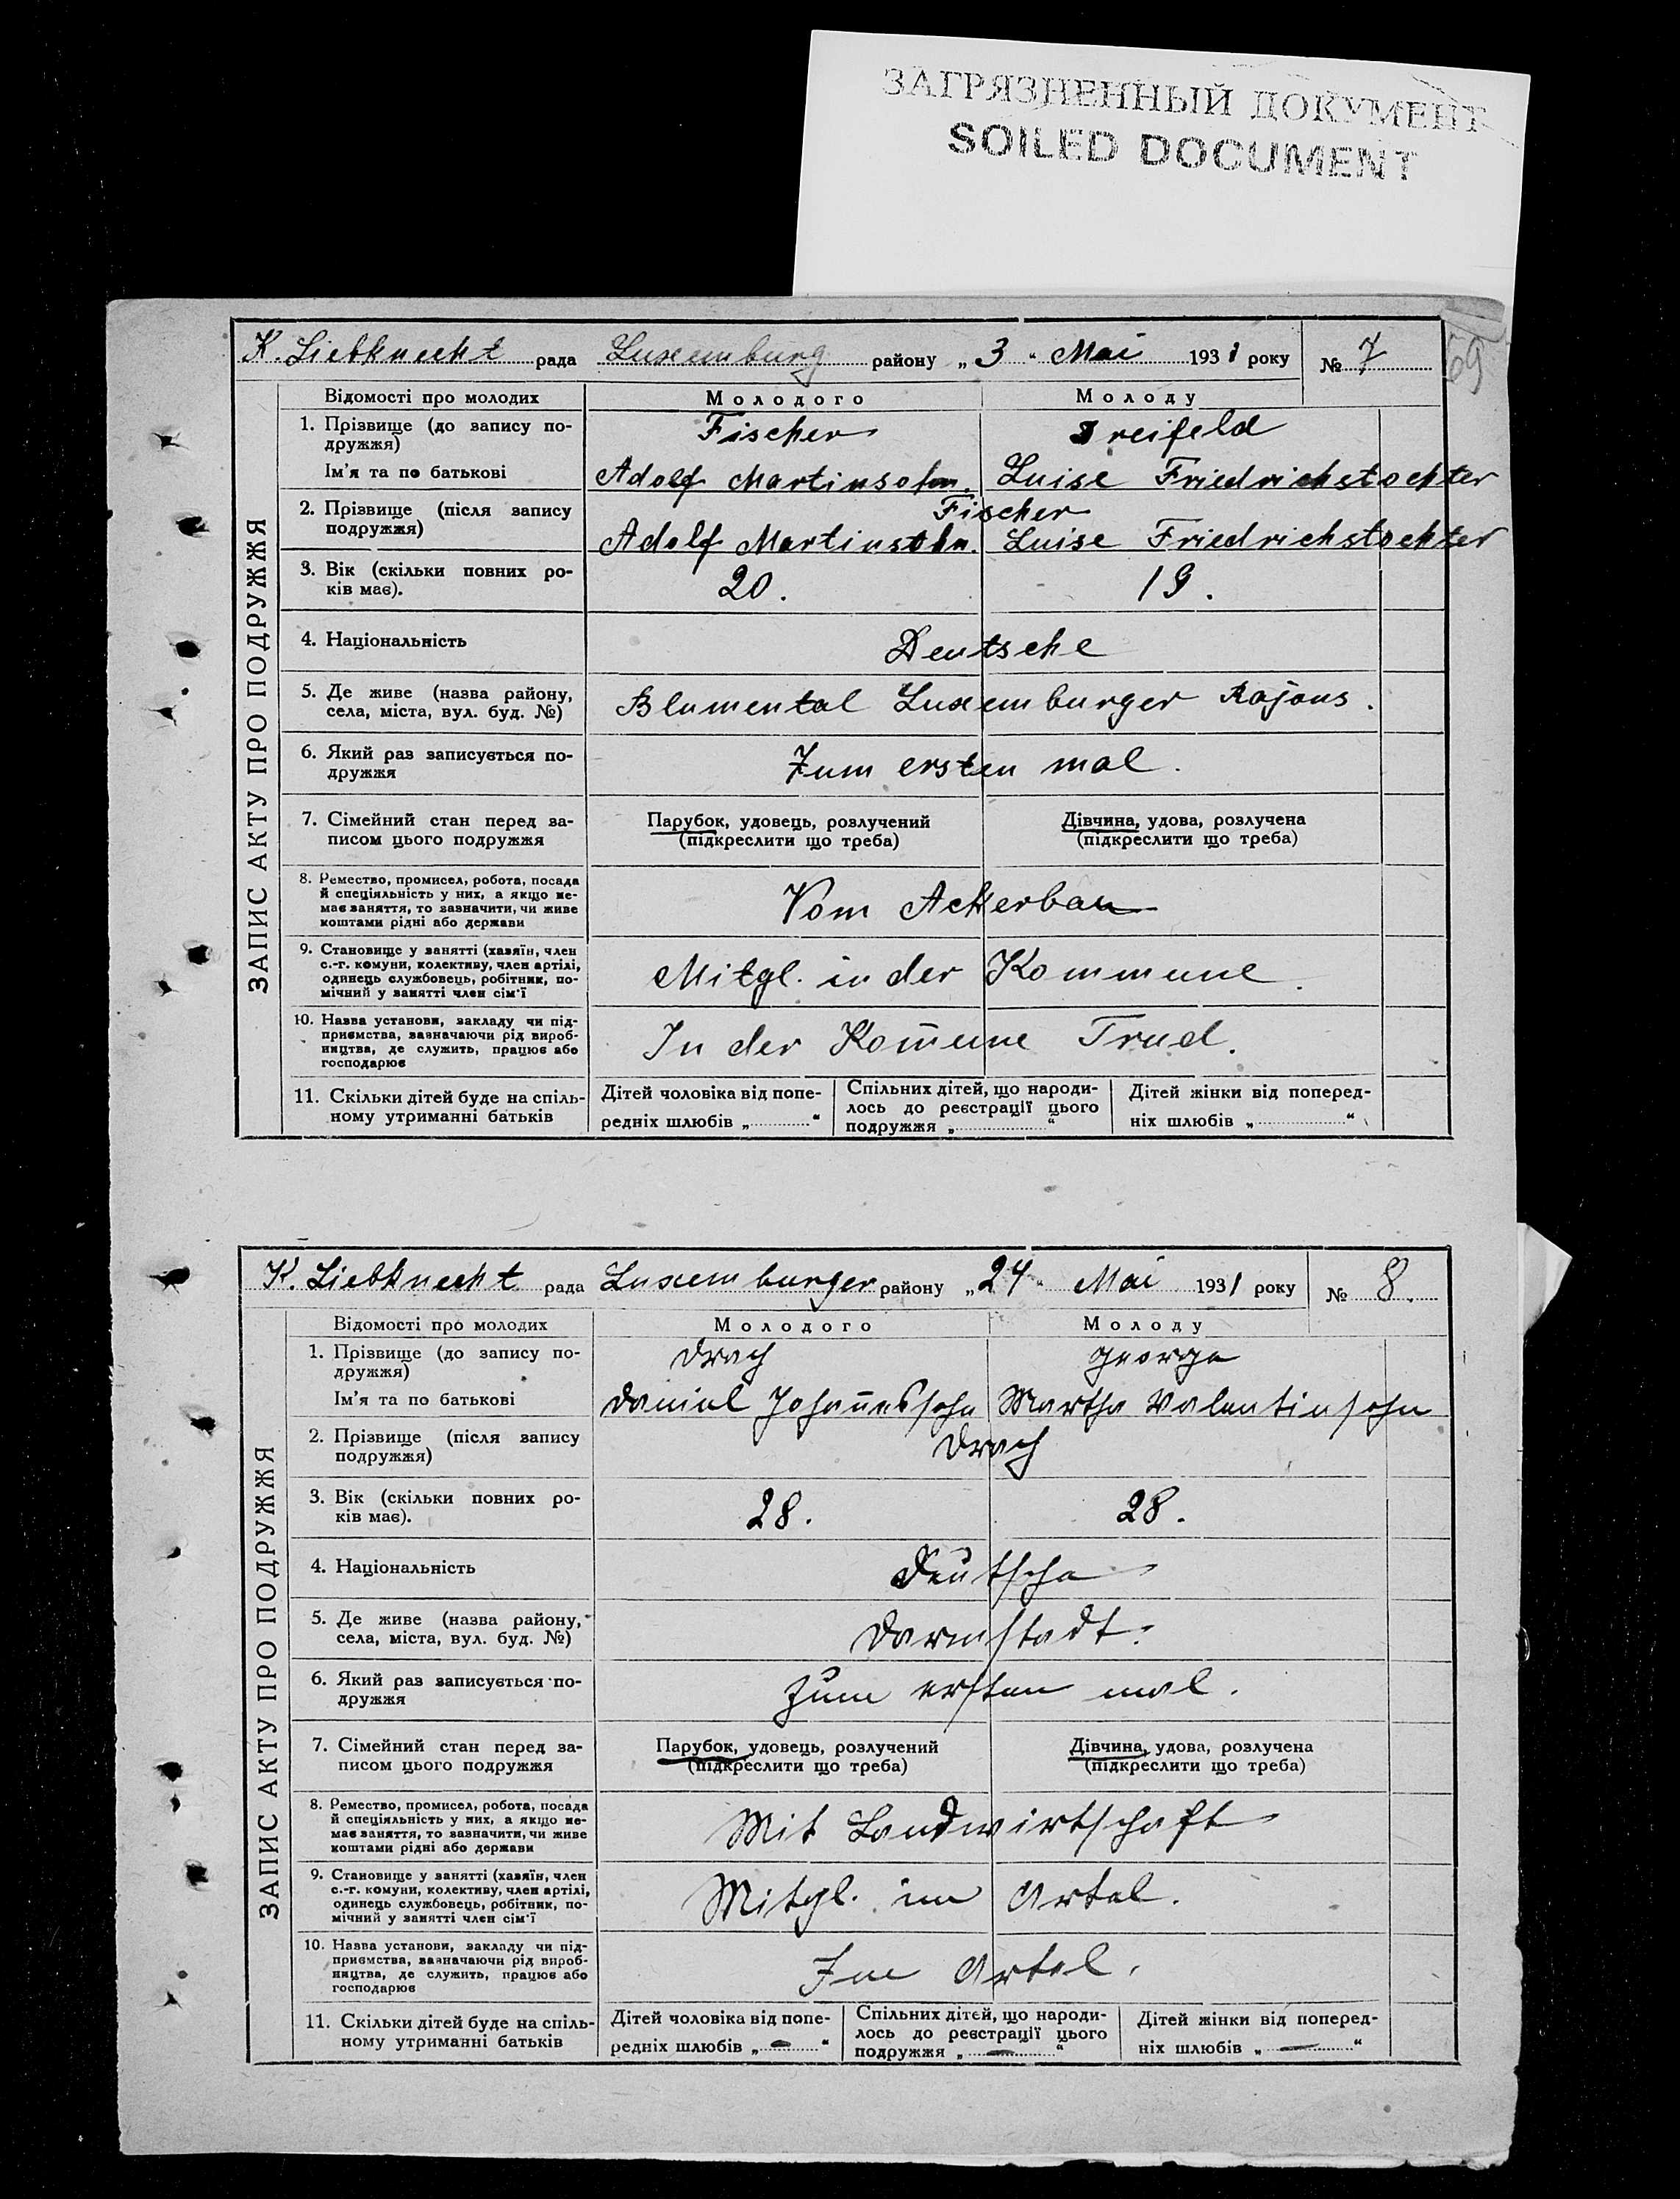 ЗАГРЯЗНЕННЫЙ ДОКУМЕНТ
SOILED DOCUMENT
69
K. Liebknecht рада Luxemburg району „3“ Mai 1931 року № 7
ЗАПИС АКТУ ПРО ПОДРУЖЖЯ
Відомості про молодих Молодого Молоду
1. Прізвище (до запису по-
дружжя) Fischer Dreifeld
Ім'я та по батькові Adolf Martinsohn. Luise Friedrichstochter
2. Прізвище (після запису Fischer
подружжя) Adolf Martinsohn. Luise Friedrichstochter
3. Вік (скільки повних ро-
ків має). 20. 19.
4. Національність Deutsche
5. Де живе (назва району,
села, міста, вул. буд. №) Blumental Luxemburger Rajons.
6. Який раз записується по-
дружжя Zum ersten mal.
7. Сімейний стан перед за- Парубок, удовець, розлучений Дівчина, удова, розлучена
писом цього подружжя (підкреслити що треба) (підкреслити що треба)
8. Ремество, промисел, робота, посада
й спеціяльність у них, а якщо не-
має заняття, то зазначити, чи живе
коштами рідні або держави Vom Ackerbau
9. Становище у занятті (хазяїн, член
с.-г. комуни, колективу, член артілі,
одинець службовець, робітник, по-
мічний у занятті член сім'ї Mitgl. in der Kommune.
10. Назва установи, закладу чи під-
приємства, зазначаючи рід вироб-
ництва, де служить, працює або
господарює In der Kom̄une Trud.
11. Скільки дітей буде на спіль-
ному утриманні батьків
Дітей чоловіка від попе-
редніх шлюбів „ “
Спільних дітей, що народи-
лось до реєстрації цього
подружжя „ “
Дітей жінки від поперед-
ніх шлюбів „ “
K. Liebknecht рада Luxemburger району „24“ Mai 1931 року № 8.
ЗАПИС АКТУ ПРО ПОДРУЖЖЯ
Відомості про молодих Молодого Молоду
1. Прізвище (до запису по-
дружжя) Drach George
Ім'я та по батькові Daniel Johan̄essohn Martha Valentinsohn
2. Прізвище (після запису
подружжя) Drach
3. Вік (скільки повних ро-
ків має). 28. 28.
4. Національність Deutsche
5. Де живе (назва району,
села, міста, вул. буд. №) Darmstadt.
6. Який раз записується по-
дружжя Zum ersten mal.
7. Сімейний стан перед за- Парубок, удовець, розлучений Дівчина, удова, розлучена
писом цього подружжя (підкреслити що треба) (підкреслити що треба)
8. Ремество, промисел, робота, посада
й спеціяльність у них, а якщо не-
має заняття, то зазначити, чи живе
коштами рідні або держави Mit Landwirtschaft
9. Становище у занятті (хазяїн, член
с.-г. комуни, колективу, член артілі,
одинець службовець, робітник, по-
мічний у занятті член сім'ї Mitgl. im Artel.
10. Назва установи, закладу чи під-
приємства, зазначаючи рід вироб-
ництва, де служить, працює або
господарює Im Artel.
11. Скільки дітей буде на спіль-
ному утриманні батьків
Дітей чоловіка від попе-
редніх шлюбів „ — “
Спільних дітей, що народи-
лось до реєстрації цього
подружжя „ — “
Дітей жінки від поперед-
ніх шлюбів „ — “